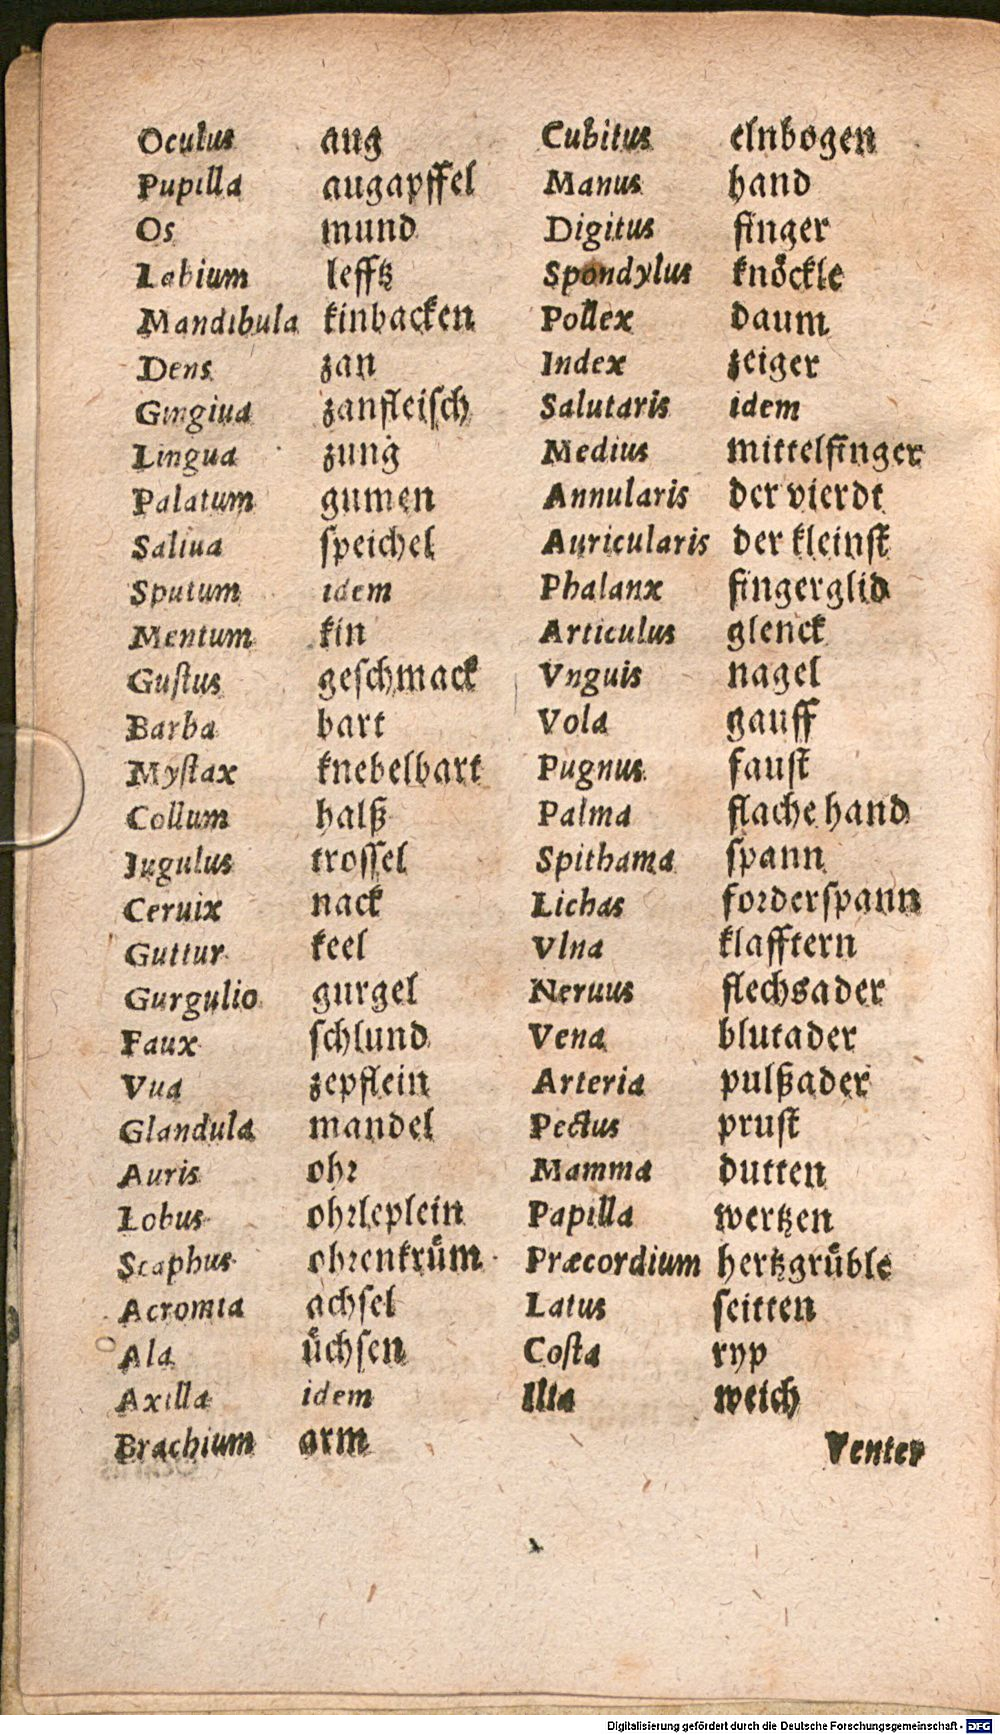 Oculus aug
Pupilla augapffel
Os mund
Labium lefftz
Mandibula kinbacken
Dens zan
Gingiua zanfleisch
Lingua zung
Palatum gumen
Saliua speichel
Sputum idem
Mentum kin
Gustus geschmack
Barba bart
Mystax knebelbart
Collum halß
Iugulus trossel
Ceruix nack
Guttur keel
Gurgulio gurgel
Faux schlund
Vua zepflein
Glandula mandel
Auris ohr
Lobus ohrleplein
Scaphus ohrenkruͤm
Acromia achsel
Ala uͤchsen
Axilla idem
Brachium arm
Cubitus elnbogen
Manus hand
Digitus finger
Spondylus knoͤckle
Pollex daum
Index zeiger
Salutaris idem
Medius mittelfinger
Annularis der vierdt
Auricularis der kleinst
Phalanx fingerglid
Articulus glenck
Vnguis nagel
Vola gauff
Pugnus faust
Palma flache hand
Spithama spann
Lichas forderspann
Vlna klafftern
Neruus flechsader
Vena blutader
Arteria pulßader
Pectus prust
Mamma dutten
Papilla wertzen
Præcordium hertzgruͤble
Latus seitten
Costa ryp
Ilia weich
Venter
Digitalisierung gefördert durch die Deutsche Forschungsgemeinschaft - DFG